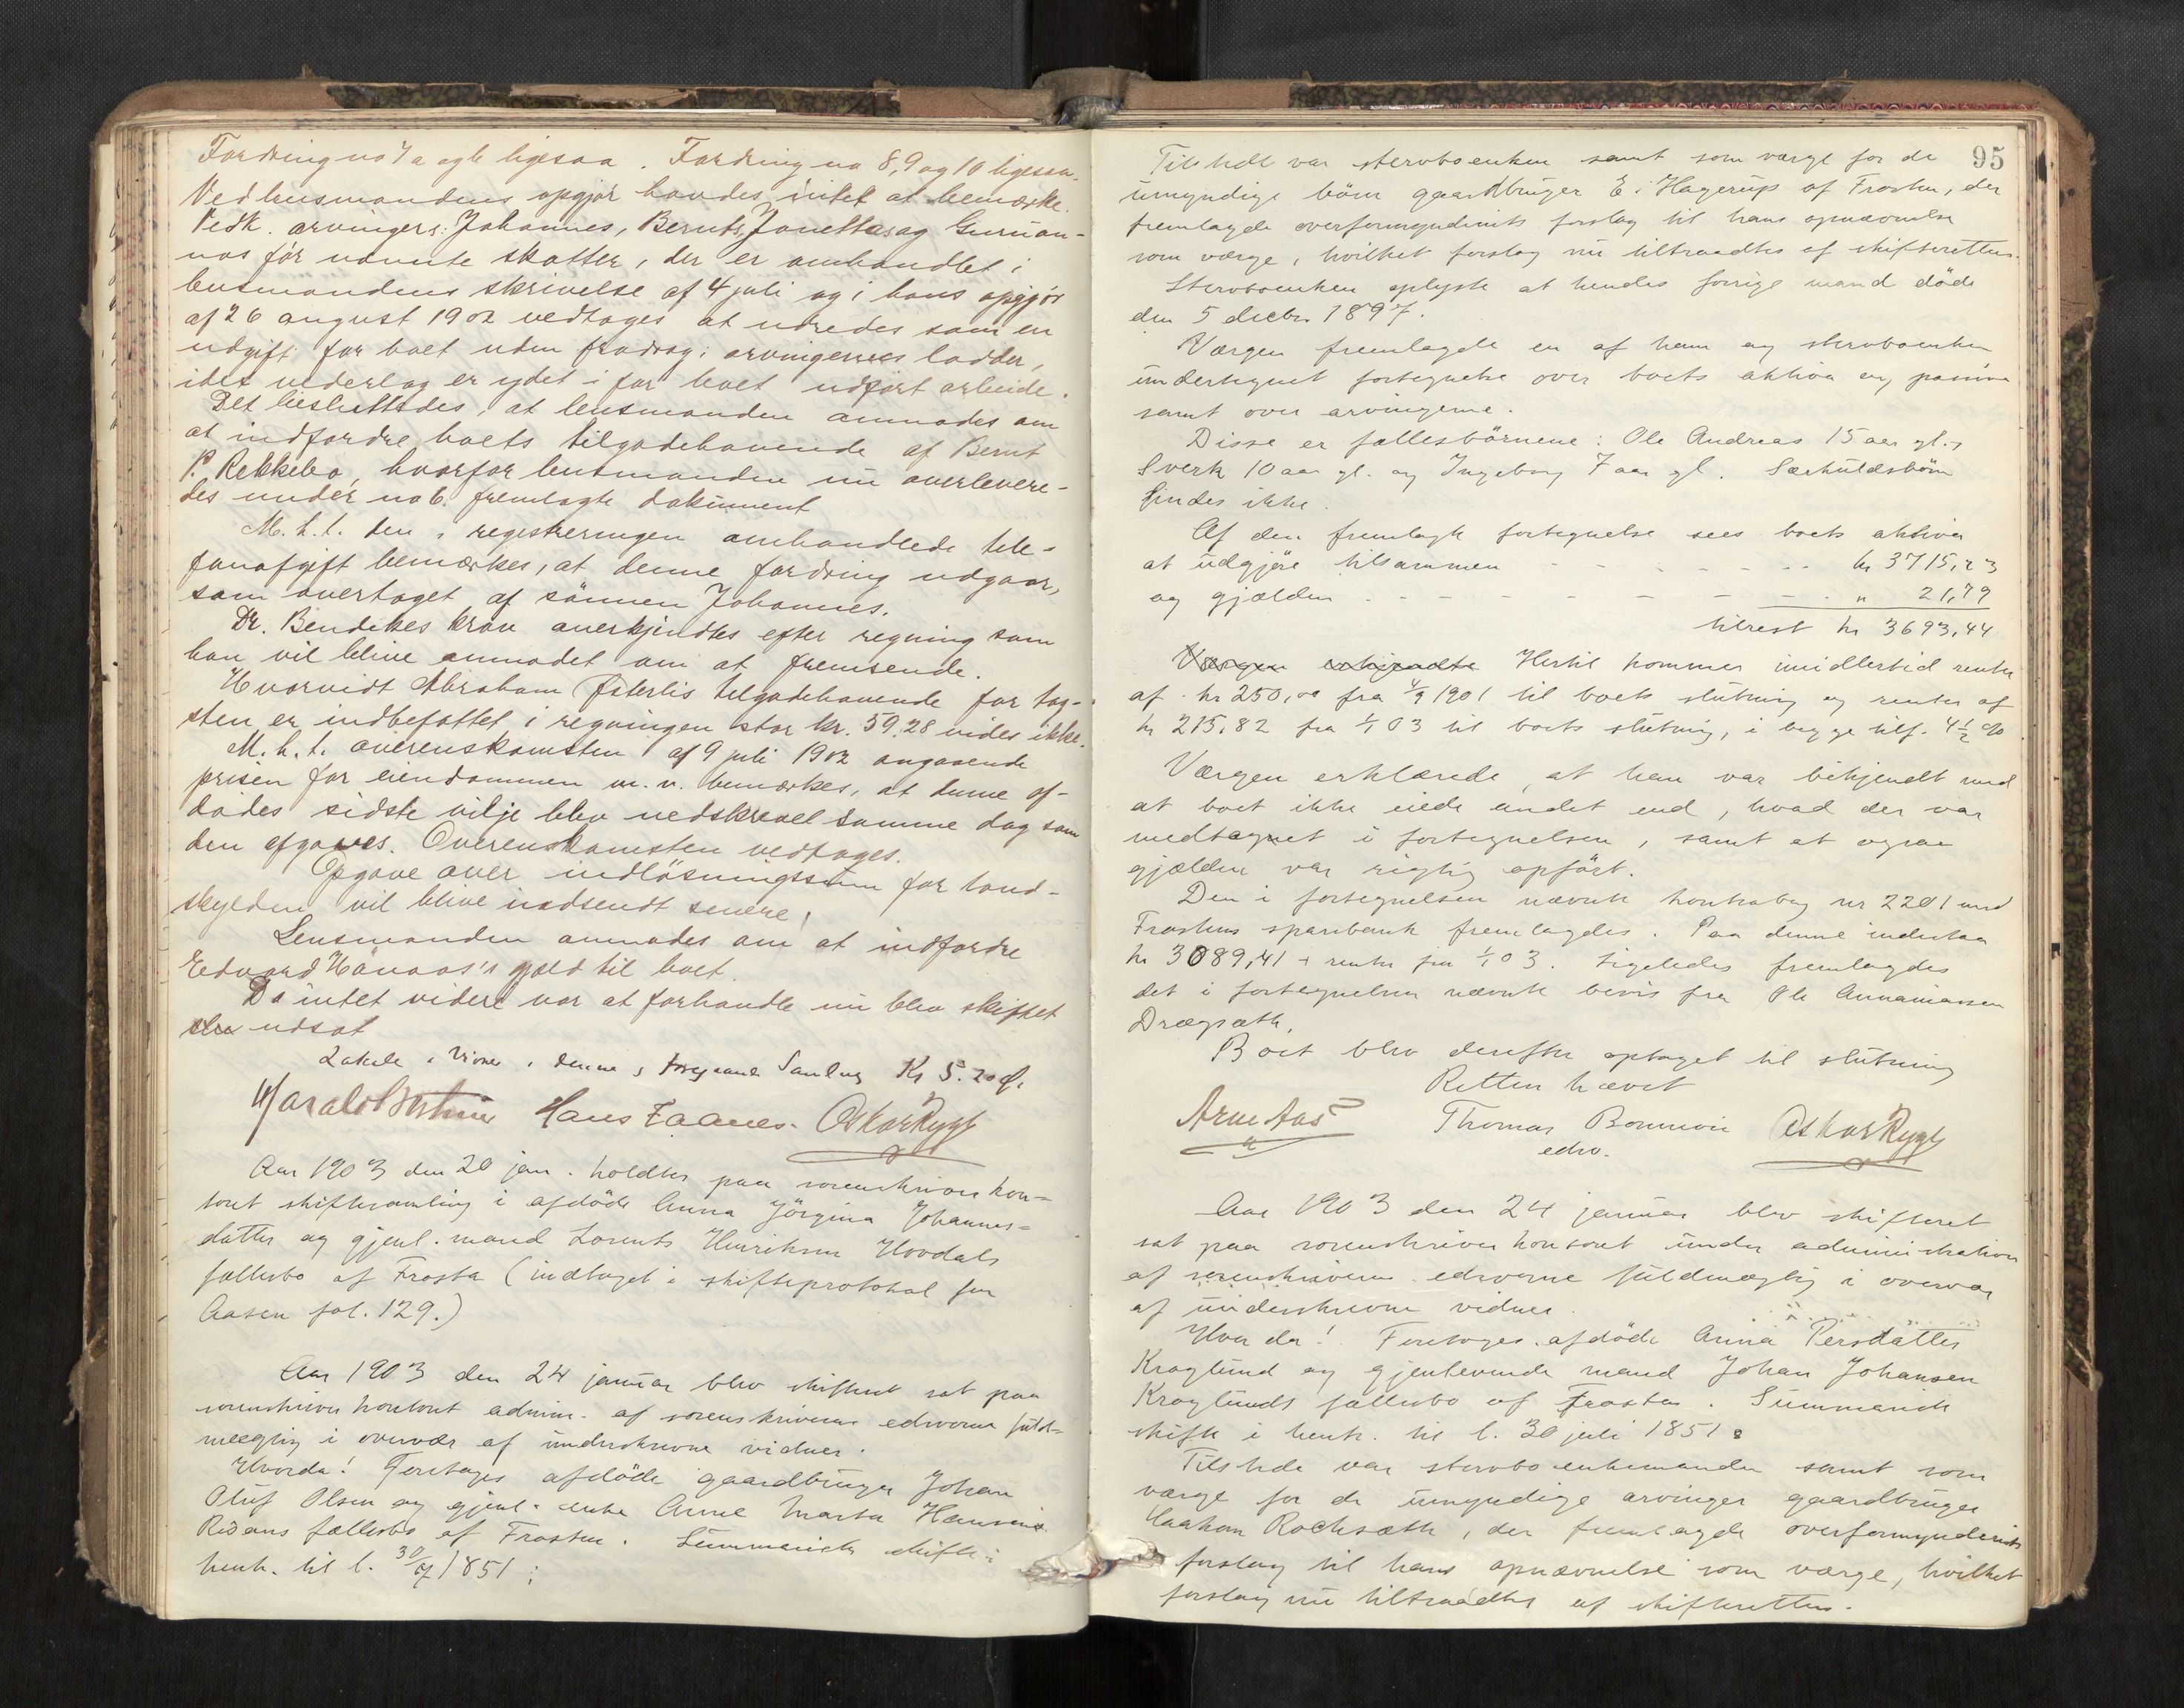 Fordring no 7 a og b ligesaa. Fordring no 8, 9 og 10 ligesaa.
Ved lensmandens opgjør havdes intet at bemærke.
Vedk. arvingers: Johannes, Bernts, Jonettas og Gurúan-
nas før nævnte skatter, der er omhandlet i
lensmandens skrivelse af 4 juli og i hans opgjør
af 26 august 1902 vedtoges at udredes som en
udgift for boet uden fradrag i arvingernes lodder,
idet vederlag er ydet i for boet udført arbeide.
Det besluttedes, at lensmanden anmodes om
at indfordre boets tilgodehavende af Bernt
P. Rekkebo, hvorfor lensmanden nú overlevere-
des under no 6. fremlagte dokúment
M. h. t. den i registreringen omhandlede tele-
fonafgift bemærkes, at denne fordring udgaar,
som overtaget af sönnen Johannes.
Dr. Bendikes krav anerkjendtes efter regning som
han vil blive anmodet om at fremsende.
Hvorvidt Abraham Østerlis tilgodehavende for tag-
sten er indbefattet i regningen stor kr. 59.28 vides ikke.
M. h. t. overenskomsten af 9 juli 1902 angaaende
prisen for eiendommen m. v. bemærkes, at denne af-
dødes sidste vilje blev nedskrevet samme dag som
den afgaves. Overenskomsten vedtages.
Opgave over indlösningssúm for land-
skylden vil blive indsendt senere.
Lensmanden anmodes om at indfordre
Edvard Hånaas's gjæld til boet.
Da intet videre var at forhandle nú blev skiftet
udsat
Lokale i denne og foregaaende Samling Kr 5.20
Hans Faanes. Oskar Rygg
Aar 1903 den 20 jan. holdtes paa sorenskriverkon-
toret skiftesamling i afdöde Anna Jörgina Johannes-
datter og gjenl. mand Lorents Henriksen Hovdals
fællesbo af Frosta (indtaget i skifteprotokol for
Aasen fol. 129.)
Aar 1903 den 24 janúar blev skifteret sat paa
sorenskriverkontoret admin. af sorenskriverens edsvorne fúld-
mægtig i overvær af únderskrevne vidner.
Hvorda! Foretoges afdöde gaardbrúger Johan
Olúf Olsen og gjenl. enke Anne Marta Hansens
Ridans fællesbo af Frosten. Súmmarisk skifte i
henh. til l. 30/7 1851:
95
Tilstede var stervboenken samt som værge for de
úmyndige börn gaardbrúger E. Hagerúp af Frosten, der
fremlagde overformynderiets forslag til hans opnævnelse
som værge, hvilket forslag nú tiltraadtes af skifteretten.
Stervboenken oplyste at hendes forrige mand döde
den 5 decbr 1897.
Værgen fremlagde en af ham og stervboenken
úndertegnet fortegnelse over boets aktiva og passiva
samt over arvingerne.
Disse er fællesbörnene: Ole Andreas 15 aar gl.,
Sverk 10 aar gl. og Ingeborg 7 aar gl. Særkúldsbörn
findes ikke.
Af den fremlagte fortegnelse sees boets aktiva
at údgjöre tilsammen - - - - - - - kr 3715,23
og gjælden - - - - - - - - - " 21,79
tilrest kr 3693,44
Værgen erkjendte Hertil kommer imidlertid renter
af kr 250,00 fra 4/9 1901 til boets slútning og renter af
kr 215,82 fra 1/1 03 til boets slútning, i begge tilf. 4 1/2 %
Værgen erklærede, at han var bekjendt med
at boet ikke eiede andet end, hvad der var
medtagnet i fortegnelsen, samt at ogsaa
gjælden var rigtig opfört.
Den i fortegnelsen nævnte kontrabog nr 2201 med
Frostens sparebank fremlagdes. Paa denne indestaar
kr 3089,41 + renter fra 1/1 03. Ligeledes fremlagdes
det i fortegnelsen nævnte bevis fra Ole Annaniassen
Drægsæth.
Boet blev derefter optaget til slútning
Retten hævet
Arne Aas Thomas Bonnevie Oskar Rygg
edsv.
Aar 1903 den 24 janúar blev skifteret
sat paa sorenskriverkontoret únder administration
af sorenskriverens edsvorne fúldmægtig i overvær
af únderskrevne vidner.
Hvorda! Foretoges afdöde Anna Persdatter
Kroglúnd og gjenlevende mand Johan Johansen
Kroglúnds fællesbo af Frosta. Súmmarisk
skifte i henh. til l. 30 júli 1851:
Tilstede var stervboenkemanden samt som
værge for de úmyndige arvinger gaardbrúger
Haakon Rochsæth, der fremlagde overformynderiets
forslag til hans opnævnelse som værge, hvilket
forslag nú tiltraadtes af skifteretten.